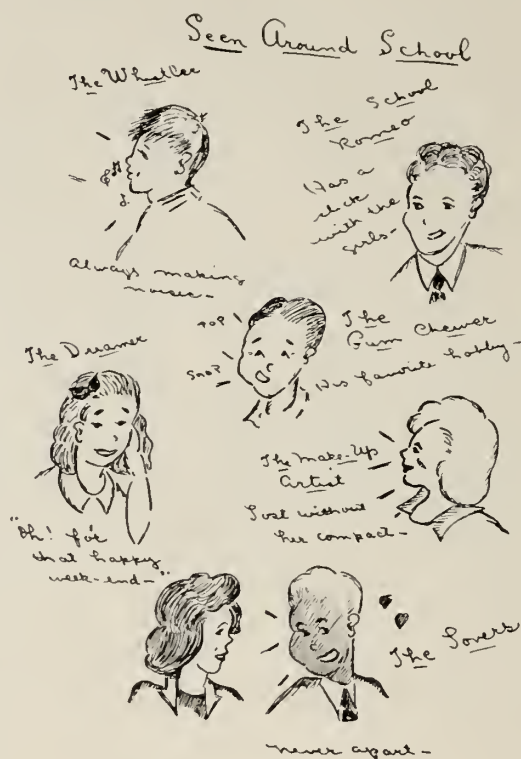 Seen Around School
The Whistler
Always making
noise-
The School
Romeo
Has a
click
with the
girls-
POP
SNAP
The
Gum Chewer
His favorite hobby-
The Dreamer
"Oh! for
that happy
week-end-"
The Make-Up
Artist
Lost without
her compact-
The Lovers
never apart-